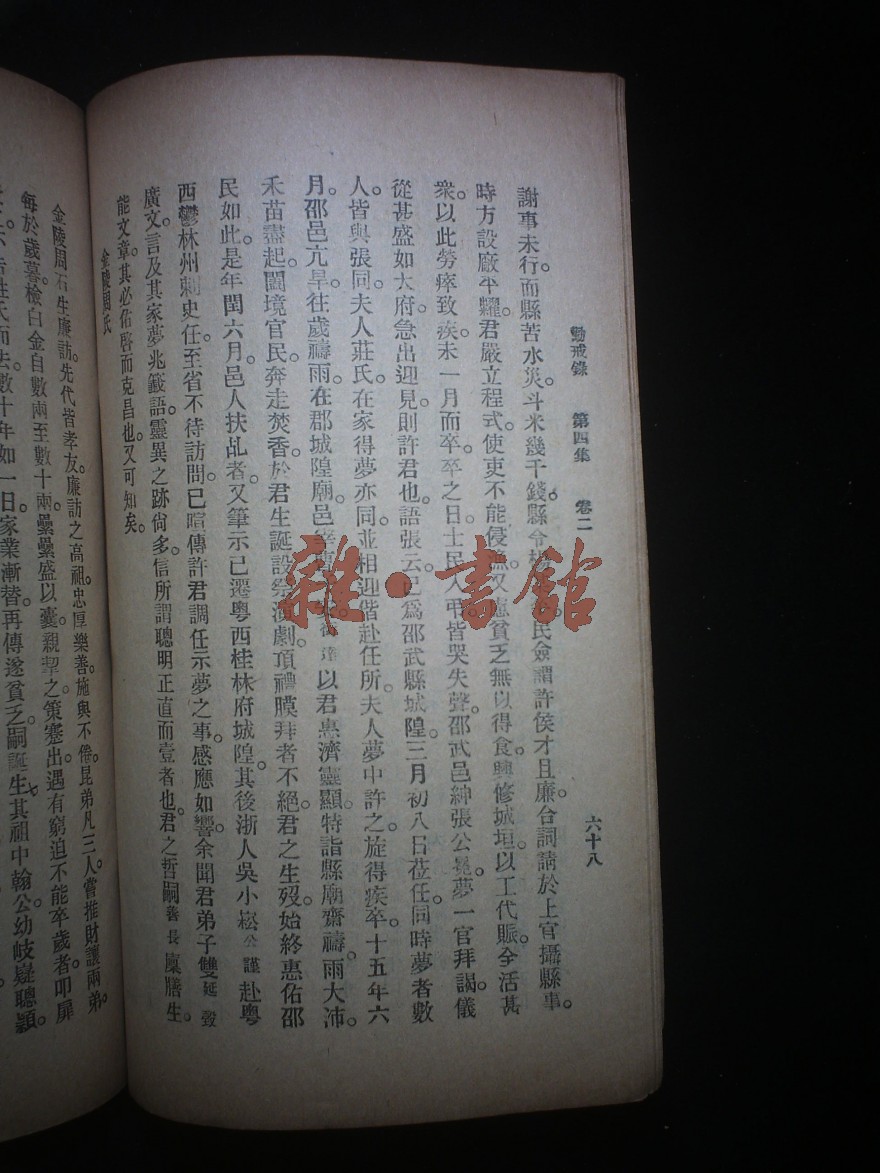 勸戒錄 第四集 卷二 六十八
謝事未行而縣苦水災。斗米幾千錢。縣令楊 民僉謂許侯才且廉。合詞請於上官攝縣事。
時方設廠平糶。君嚴立程式。使吏不能侵漁。又慮貧乏無以得食。興修城垣。以工代賑。全活甚
衆。以此勞瘁致疾。未一月而卒。卒之日。士民入弔。皆哭失聲。邵武邑紳張公冕。夢一官拜謁。儀
從甚盛如大府。急出迎見。則許君也。語張云。已爲邵武縣城隍。三月初八日莅任。同時夢者數
人。皆與張同。夫人莊氏。在家得夢亦同。並相迎偕赴任所。夫人夢中許之。旋得疾卒。十五年六
月。邵邑亢旱。往歲禱雨。在郡城隍廟。邑宰 以君惠濟靈顯。特詣縣廟齋禱。雨大沛。
禾苗盡起。闔境官民。奔走焚香。於君生誕設祭演劇。頂禮膜拜者不絕。君之生歿。始終惠佑邵
民如此。是年閏六月。邑人扶乩者。又筆示已遷粵西桂林府城隍。其後浙人吳小崧公謹赴粵
西鬱林州刺史任。至省不待訪問。已喧傳許君調任示夢之事。感應如響。余聞君弟子雙延毂
廣文言及其家夢兆籤語。靈異之跡尙多。信所謂聰明正直而壹者也。君之哲嗣善長廩膳生。
能文章。其必佑啓而克昌也。又可知矣。
金陵周氏
金陵周石生廉訪。先代皆孝友。廉訪之高祖。忠厚樂善。施與不倦。昆弟凡三人。嘗推財讓兩弟。
每於歲暮。檢白金自數兩至數十兩。纍纍盛以囊。親挈之。策蹇出。遇有窮迫不能卒歲者。叩扉
姓氏而去。數十年如一日。家業漸替。再傳遂貧乏。嗣誕生其祖中翰公。幼岐嶷聰穎。